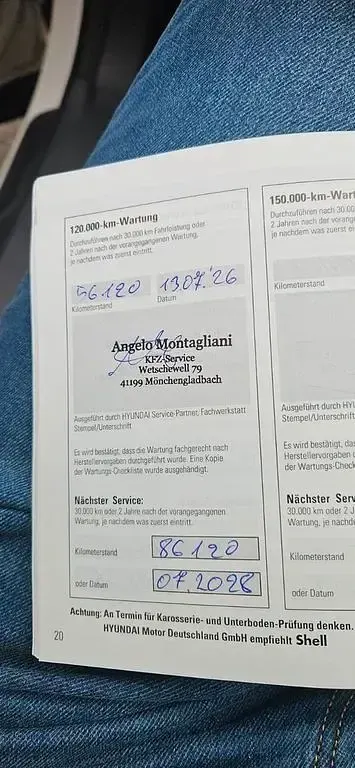 120.000-km-Wartung
Durchzuführen nach 30.000 km Fahrleistung oder
2 Jahre nach der vorangegangenen Wartung,
je nachdem was zuerst eintritt.
56.120 13.07.'26
Kilometerstand Datum
Angelo Montagliani
KFZ-Service
Wetschewell 79
41199 Mönchengladbach
Ausgeführt durch HYUNDAI Service-Partner, Fachwerkstatt
Stempel/Unterschrift
Es wird bestätigt, dass die Wartung fachgerecht nach
Herstellervorgaben durchgeführt wurde. Eine Kopie
der Wartungs-Checkliste wurde ausgehändigt.
Nächster Service:
30.000 km oder 2 Jahre nach der vorangegangenen
Wartung, je nachdem was zuerst eintritt.
Kilometerstand 86120
oder Datum 07.2028
150.000-km-Wart
Durchzuführen nach 30.00
2 Jahre nach der vorange
je nachdem was zuerst e
Kilometerstand
Ausgeführt durch HYUND
Stempel/Unterschrift
Es wird bestätigt, das
Herstellervorgaben du
der Wartungs-Check
Nächster Serv
30.000 km oder 2 Jah
Wartung, je nachde
Kilometerstand
oder Datum
Achtung: An Termin für Karosserie- und Unterboden-Prüfung denken.
20 HYUNDAI Motor Deutschland GmbH empfiehlt Shell